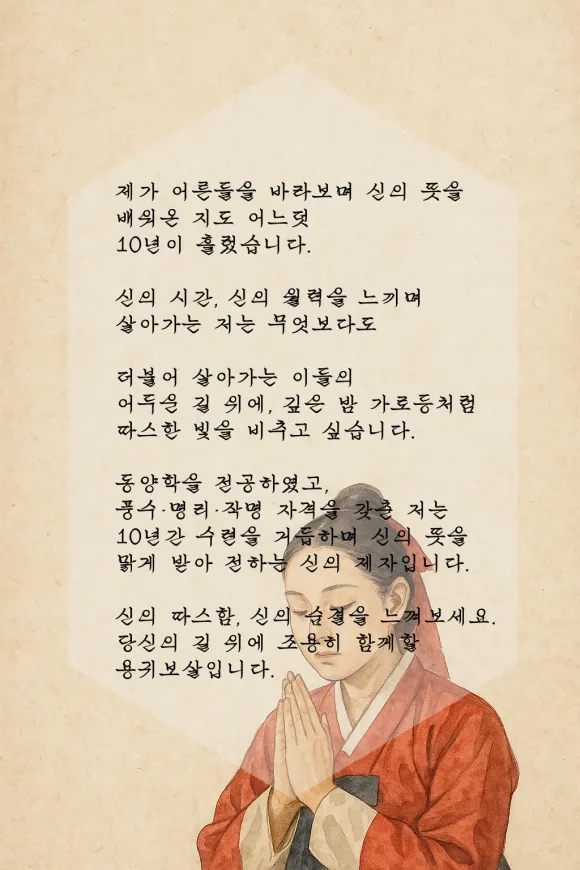 제가 어른들을 바라보며 신의 뜻을
배워온 지도 어느덧
10년이 흘렀습니다.
신의 시간, 신의 월력을 느끼며
살아가는 저는 무엇보다도
더불어 살아가는 이들의
어두운 길 위에, 깊은 밤 가로등처럼
따스한 빛을 비추고 싶습니다.
동양학을 전공하였고,
풍수·명리·작명 자격을 갖춘 저는
10년간 수련을 거듭하며 신의 뜻을
맑게 받아 전하는 신의 제자입니다.
신의 따스함, 신의 숨결을 느껴보세요.
당신의 길 위에 조용히 함께할
용귀보살입니다.